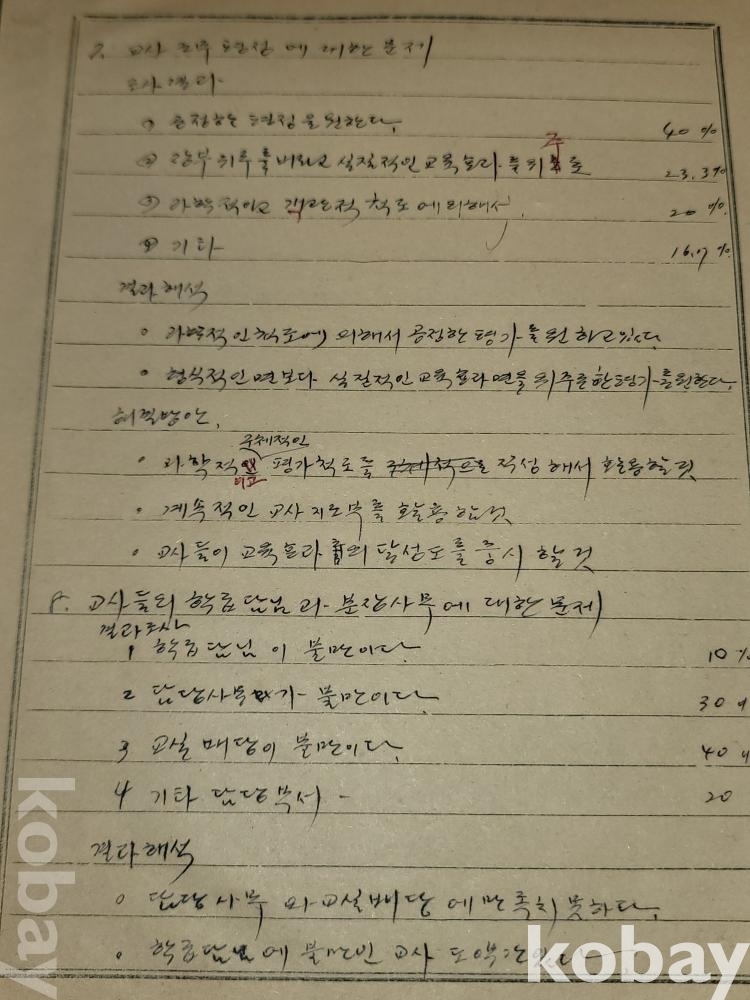 7. 교사 근무 평정 에 대한 문제
조사결과
① 공정한 평정을 원한다. 40 %
② 장부 위주를 버리고 실질적인 교육효과를 위주로 23.3%
③ 과학적이고 객관적 척도에 의해서 20 %
④ 기타 16.7 %
결과해석
◦ 과학적인 척도에 의해서 공정한 평가를 원하고 있다
◦ 형식적인 면보다 실질적인 교육효과면을 위주로 한 평가를 원한다.
해결방안
구체적인
◦ 과학적이고 평가척도를 작성해서 활용할 것
◦ 계속적인 교사 지도부를 활용할 것
◦ 교사들이 교육효과의 달성도를 중시 할 것
8. 교사들의 학급담임 과 분장사무에 대한 문제
결과조사
1 학급담임이 불만이다. 10 %
2 담당사무가 불만이다. 30
3 교실 배당이 불만이다. 40
4 기타 담당부서 - 20
결과해석
◦ 담당사무 와 교실배당 에 만족치 못하다.
◦ 학급담임에 불만인 교사 도 약간 있다
kobay
kobay